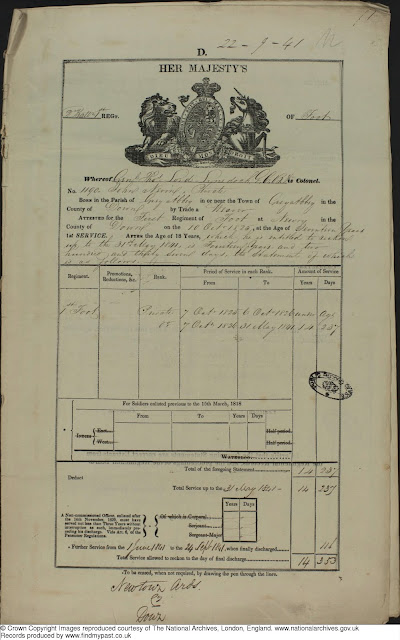 22 - 9 - 41
D.
HER MAJESTY'S
REGT. OF Foot
DIEU ET MON DROIT
Whereof is Colonel.
No. 1190 John
BORN in the Parish of in or near the Town of
County of Down by Trade a
ATTESTED for the First Regiment of Foot at
County of Down on the 18 Oct 1825, at the Age of Seventeen Years
is SERVICE, AFTER the AGE of 18 YEARS, which he is entitled to reckon
up to the 31 May 1841, is Fourteen years and two
hundred and thirty seven days, the Statement of which
is as follows
Regiment. Promotions, Reductions, &c. Rank. Period of Service in each Rank. Amount of Service
From To Years Days
1st Foot Private 7 Oct 1825 6 Oct 1826 under age
Do 7 Octr 1826 31 May 1841 14 237
For Soldiers enlisted previous to the 10th March, 1818
From To Years Days
INDIES East Half period.
West Half period.
WATERLOO
Total of the foregoing Statement 14 237
Deduct
Total Service up to the 31 May 1841 14 237
Years Days
A Non-commissioned Officer, enlisted after the 14th November, 1829, must have served not less than Three Years without interruption as such, immediately preceding his discharge. Vide Art. 6, of the Pension Regulations.
Of which in Corporal
Sergeant
Sergeant-Major
Further Service from the 1 June 1841 to the 24 Sept 1841, when finally discharged 116
Total Service allowed to reckon to the day of final discharge 14 353
To be erased, when not required, by drawing the pen through the lines.
Newtown Ards
Co
Down
© Crown Copyright Images reproduced courtesy of The National Archives, London, England. www.nationalarchives.gov.uk
Records reproduced by www.findmypast.co.uk